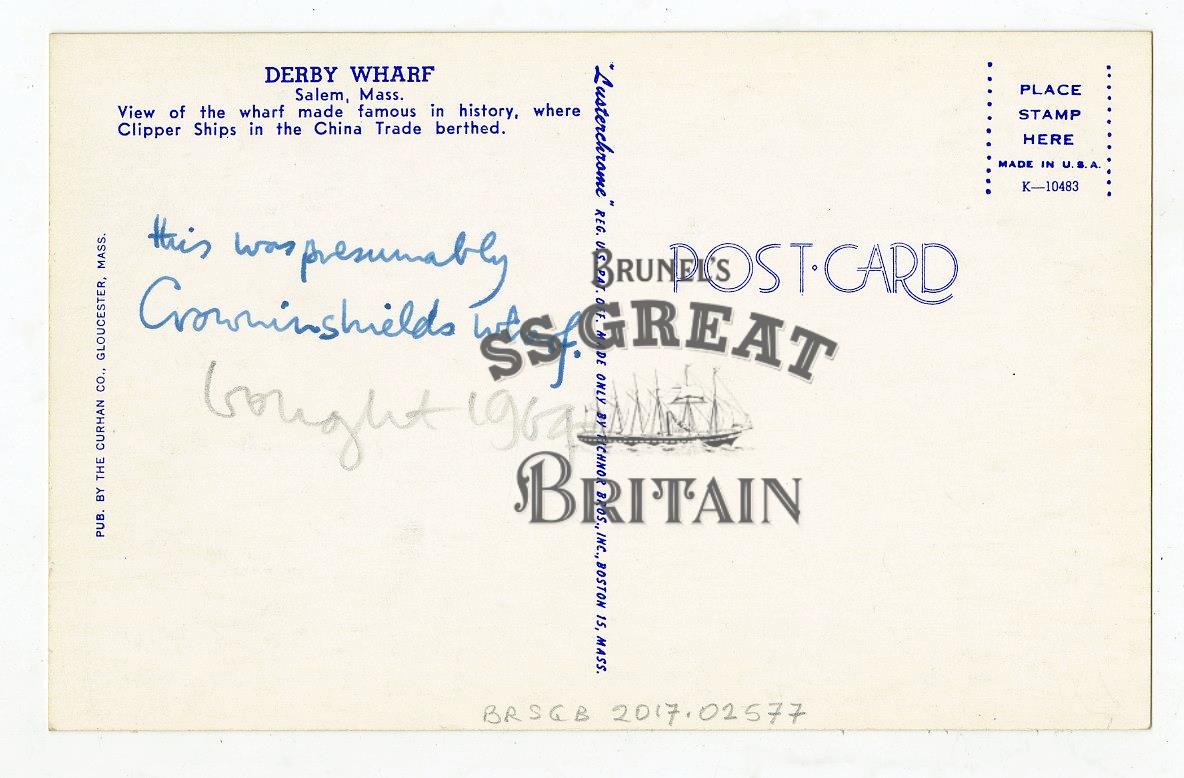 DERBY WHARF
Salem, Mass.
View of the wharf made famous in history, where
Clipper Ships in the China Trade berthed.
this was presumably
Crowninshields wharf.
bought 1969
PUB. BY THE CURHAN CO., GLOUCESTER, MASS.
"Lusterchrome" REG. U.S. PAT. OFF. MADE ONLY BY TICHNOR BROS., INC., BOSTON 15, MASS.
PLACE
STAMP
HERE
MADE IN U.S.A.
K—10483
POST·CARD
BRUNEL'S
SS GREAT
BRITAIN
BRSGB 2017.02577